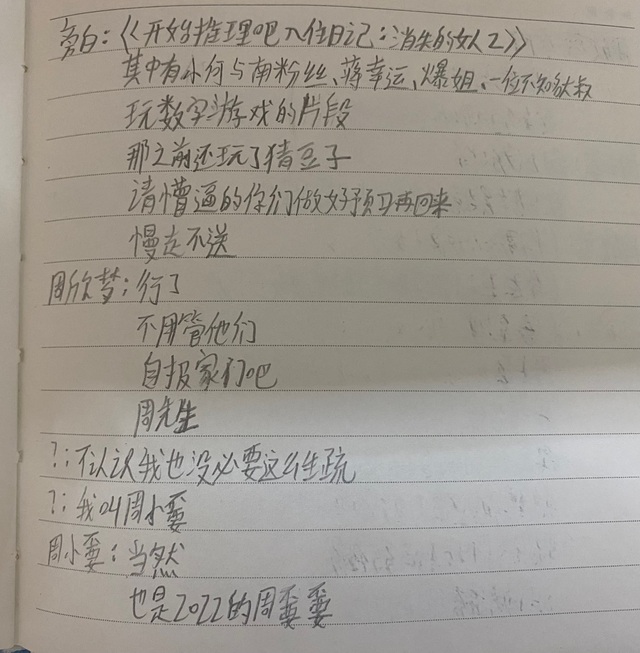 旁白:《开始推理吧入住日记:消失的女人2》
其中有小何与南粉丝、蒋幸运、爆姐、一位不知名叔
玩数字游戏的片段
那之前还玩了猜豆子
请懵逼的你们做好预习再回来
慢走不送
周欣梦:行了
不用管他们
自报家门吧
周先生
?:不认识我也没必要这么生疏
?:我叫周小要
周小要:当然
也是2022的周